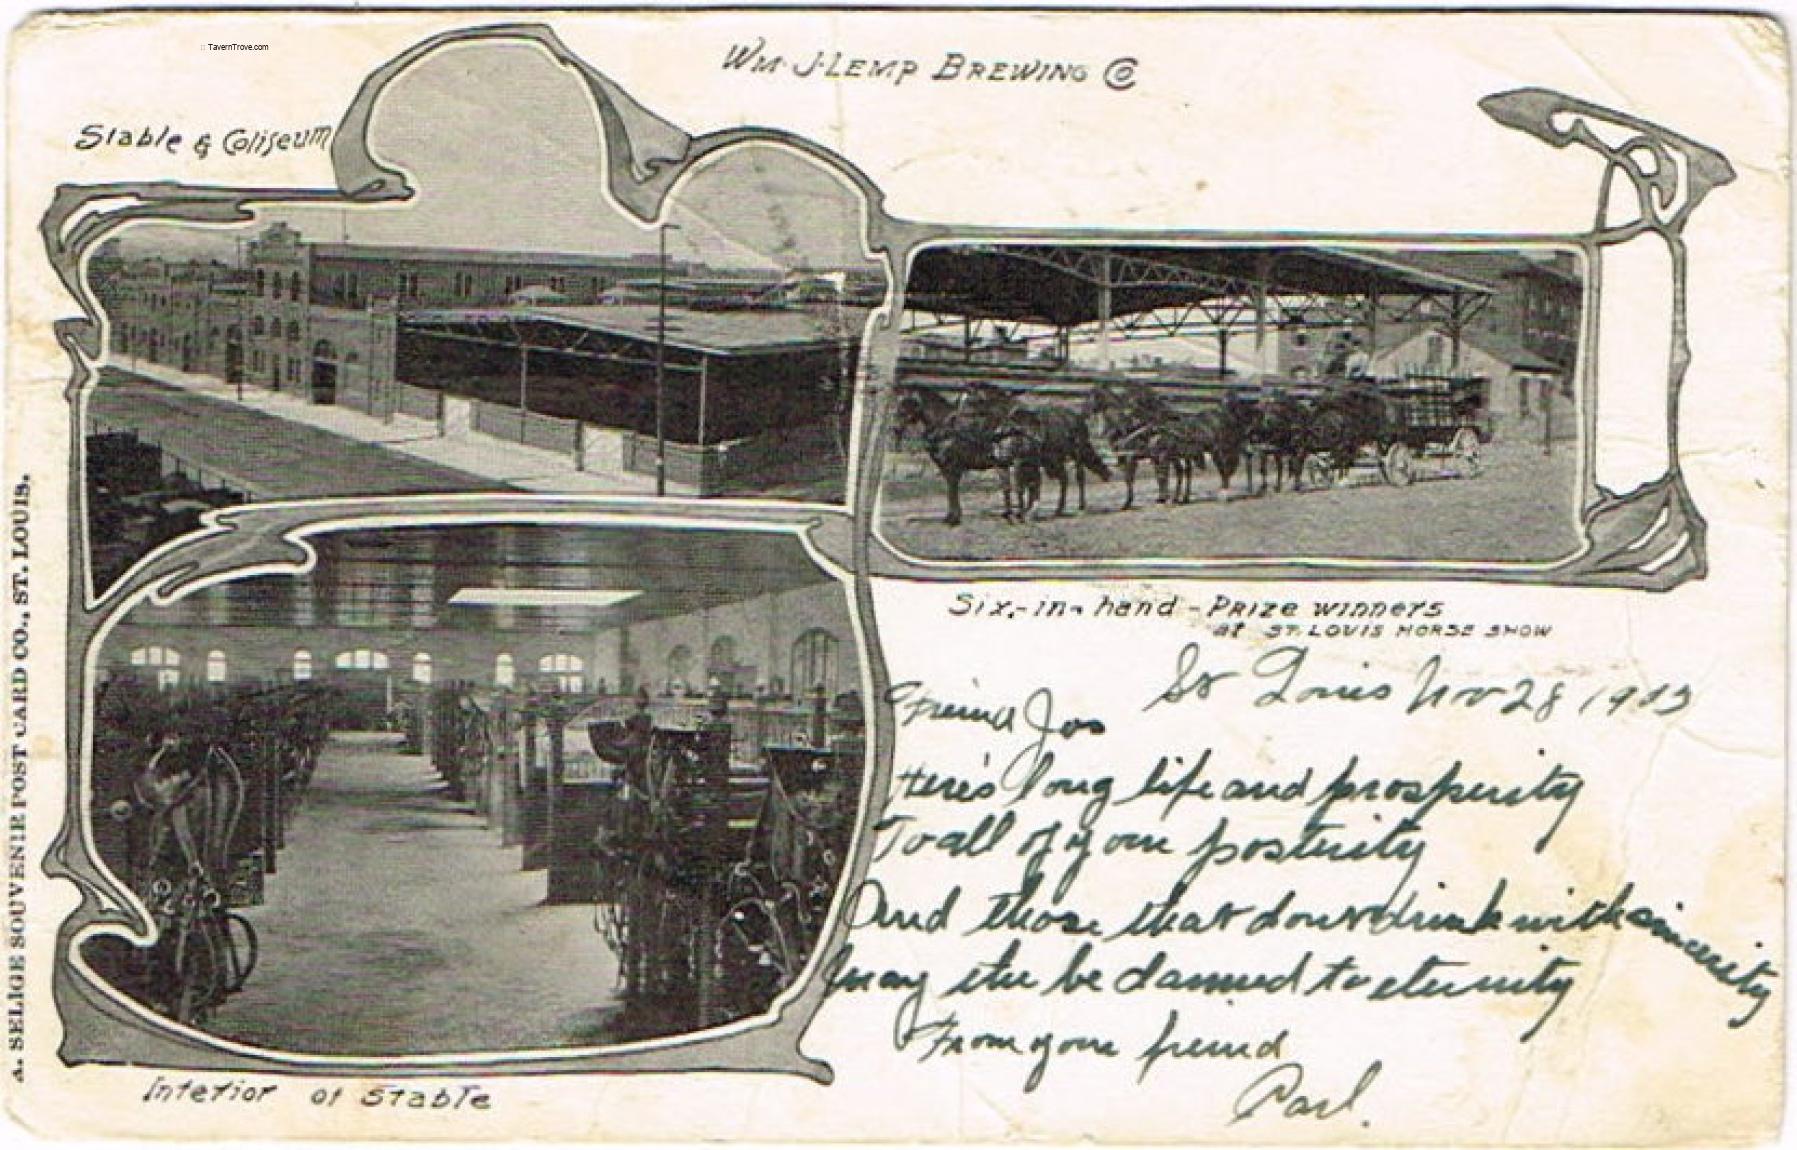 :: TavernTrove.com
Wm. J. Lemp Brewing Co
Stable & Coliseum
Six-in-hand - Prize winners
at St. Louis Horse Show
St Louis Nov 28 1903
Friend Jos
Here's long life and prosperity
To all of your posterity
And those that don't drink with sincerity
may the be damned to eternity
From your friend
Carl.
Interior of Stable
A. SELIGE SOUVENIR POST CARD CO., ST. LOUIS.